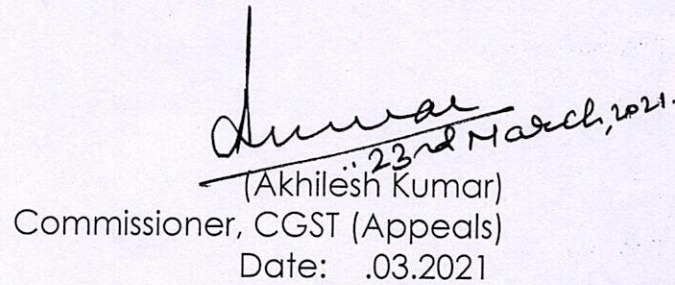 23rd March, 2021.
(Akhilesh Kumar)
Commissioner, CGST (Appeals)
Date: .03.2021